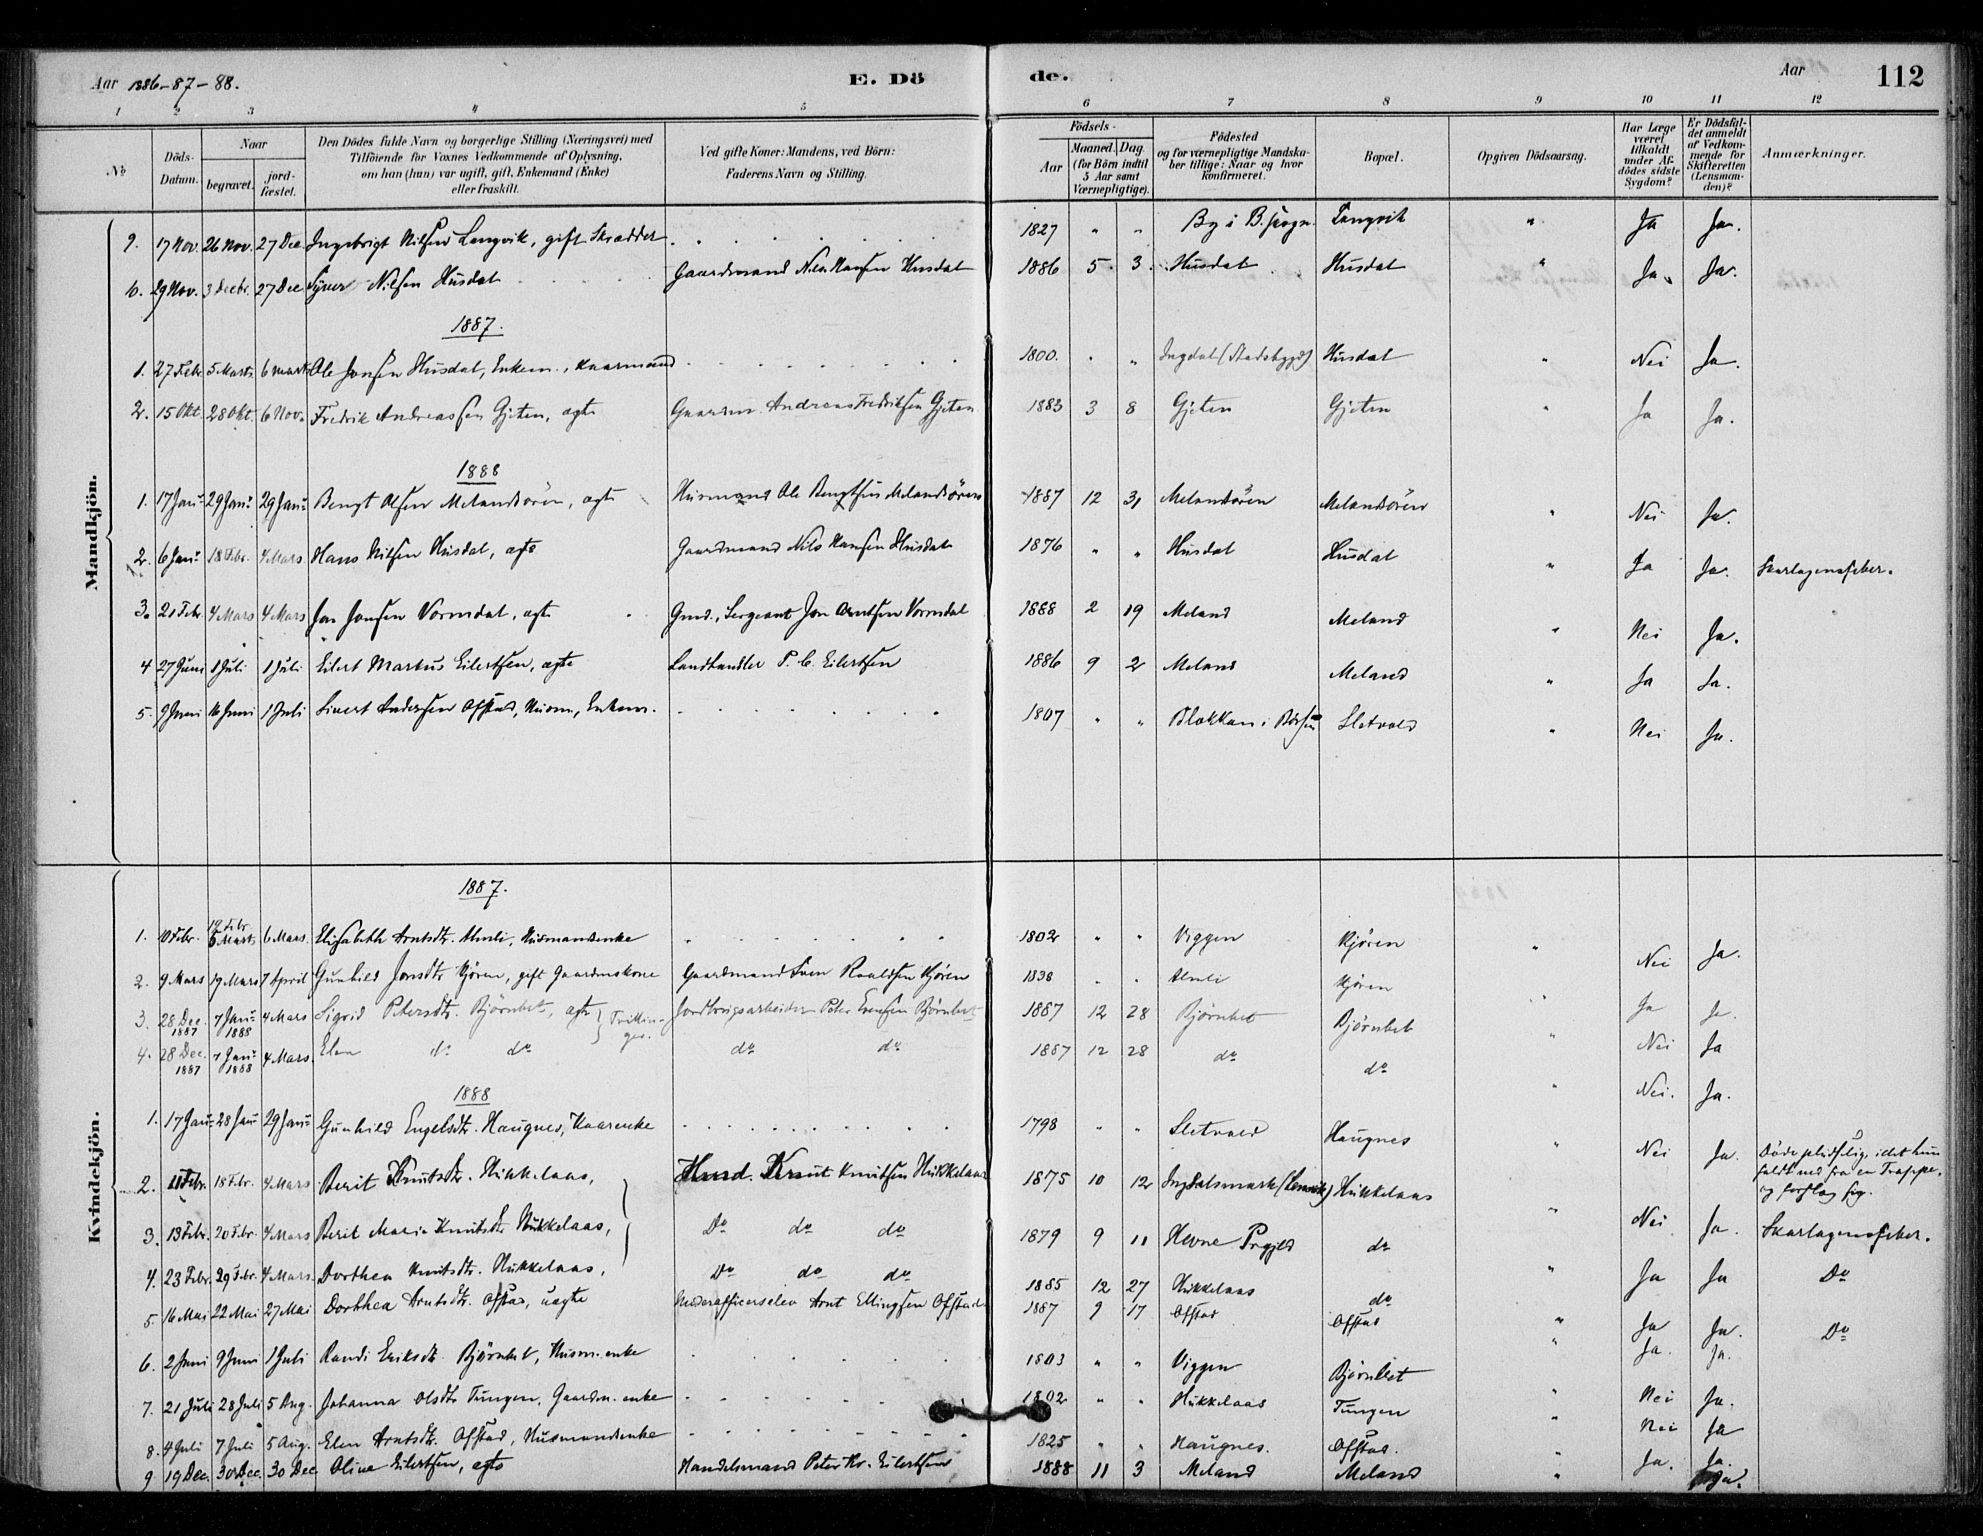 Aar 1886-87-88.
E. Dö
de.
Aar
112
1 2 3 4 5 6 7 8 9 10 11 12
№
Döds-Datum.
Naar
begravet.
jord-fæstet.
Den Dödes fulde Navn og borgerlige Stilling (Næringsvei) med
Tilföiende for Voxnes Vedkommende af Oplysning,
om han (hun) var ugift, gift, Enkemand (Enke)
eller fraskilt.
Ved gifte Koner: Mandens, ved Börn:
Faderens Navn og Stilling.
Födsels-
Aar
Maaned. Dag.
(for Börn indtil
5 Aar samt
Værnepligtige).
Födested
og for værnepligtige Mandska-
ber tillige: Naar og hvor
konfirmeret.
Bopæl.
Opgiven Dödsaarsag.
Har Læge
været
tilkaldt
under Af-
dödes sidste
Sygdom?
Er Dödsfal-
det anmeldt
af Vedkom-
mende for
Skifteretten
(Lensman-
den)?
Anmærkninger.
Mandkjön.
9. 17 Nov. 26 Nov. 27 Dec. Ingebrigt Nilsen Langvik, gift Skrædder 1827 " " By i B. sogn. Langvik " Ja Ja.
10. 29 Nov. 3 Decbr. 27 Dec Syver Nilsen Husdal Gaardmand Nils Hansen Husdal 1886 5. 3. Husdal Husdal " Ja. Ja.
1887.
1. 27 Febr. 5 Marts 6 Marts Ole Jonsen Husdal, Enkem., Kaarmand 1800. " " Ingdal (Stadsbygd) Husdal " Nei Ja.
2. 15 Okt. 28 Okt. 6 Nov. Fredrik Andreassen Gjeten, ægte Gaardm. Andreas Fredriksen Gjeten 1883 3 8 Gjeten Gjeten " Ja Ja.
1888
1. 17 Janr 29 Janr 29 Janr Bengt Olsen Melandsören, ægte Husmand Ole Bengtsen Melandsören 1887 12 31 Melandsören Melandsören " Nei Ja.
2. 6 Janr 18 Febr. 4 Mars Hans Nilsen Husdal, ægte Gaardmand Nils Hansen Husdal 1876 " " Husdal Husdal " Ja Ja. Skarlagensfeber.
3. 21 Febr. 4 Mars 4 Mars Jon Jonsen Vormdal, ægte Gmd., Sergeant Jon Arntsen Vormdal 1888 2 19 Meland Meland " Nei Ja.
4 27 Juni 1 Juli 1 Juli Eilert Markus Eilertsen, ægte Landhandler P. C. Eilertsen 1886 9 2 Meland Meland " Ja Ja.
5. 9 Juni 16 Juni 1 Juli Sivert Andersen Ofstad, Husm., Enkem. 1807 " " Blokkan i Börsen Sletvold " Nei Ja.
Kvindekjön.
1887.
1. 10 Febr. 19 Febr 5 Marts 6 Mars. Elisabeth Arntsdtr. Almli, Husmandsenke 1802 " " Viggen Kjören " Nei Ja.
2. 9 Mars 19 Mars 7 April Gunhild Jonsdtr Kjören, gift Gaardmkone Gaardmand Sven Roaldsen Kjören 1838 " " Almli Kjören " Ja Ja.
3. 28 Dec. 1887 7 Janr 1888 4 Mars Sigrid Petersdtr. Björnbet, ægte } Tvillinger. Jordbrugsarbeider Peter Evensen Björnbet 1887 12 28 Björnbet Björnbet " Nei Ja
4. 28 Dec. 1887 7 Janr 1888 4 Mars. Elen do do do do 1887 12 28 do do " Nei. Ja.
1888
1. 17 Janr 28 Janr 29 Janr Gunhild Engelsdtr. Haugnes, Kaarenke 1798 " " Sletvold Haugnes " Nei Ja. Döde pludselig idet hun
faldt ned fra en Trappe
og forslog sig.
2. 11 Febr. 18 Febr. 4 Mars. Berit Knutsdtr. Hukkelaas, Husmd. Knut Knutsen Hukkelaas 1875 10 12 Ingdalsmark (Lensvik) Hukkelaas " Nei. Ja. Skarlagensfeber.
3. 13 Febr. 20 Febr. 4 Mars Berit Maria Knutsdtr Hukkelaas, Do do do 1879 9 11 Hevne Prgjeld do " Ja Ja Do
4. 23 Febr. 29 Febr. 4 Mars. Dorthea Knutsdtr. Hukkelaas, Do do do 1885 12 27 Hukkelaas do " Ja Ja. Do
5. 16 Mai 22 Mai 27 Mai Dorthea Arntsdtr. Ofstad, uægte Underofficerselev Arnt Ellingsen Ofstad 1887 9 17 Ofstad Ofstad " Ja. Ja.
6. 2 Juni 9 Juni 1 Juli Randi Eriksdtr. Björnbet, Husm. enke 1803 " " Viggen Björnbet " Nei Ja.
7. 21 Juli 28 Juli 5 Aug. Johanna Olsdtr Tungen, Gaardm. enke 1802 " " Hukkelaas Tungen " Nei Ja
8. 4 Juli 7 Juli 5 Aug. Elen Arntsdtr. Ofstad, Husmandsenke 1825 " " Haugnes. Ofstad. Ja. Ja.
9 19 Dec. 30 Dec. 30 Dec Olina Eilertsen, ægte Handelsmand Peter Kr. Eilertsen 1888 11 3 Meland Meland " Ja.